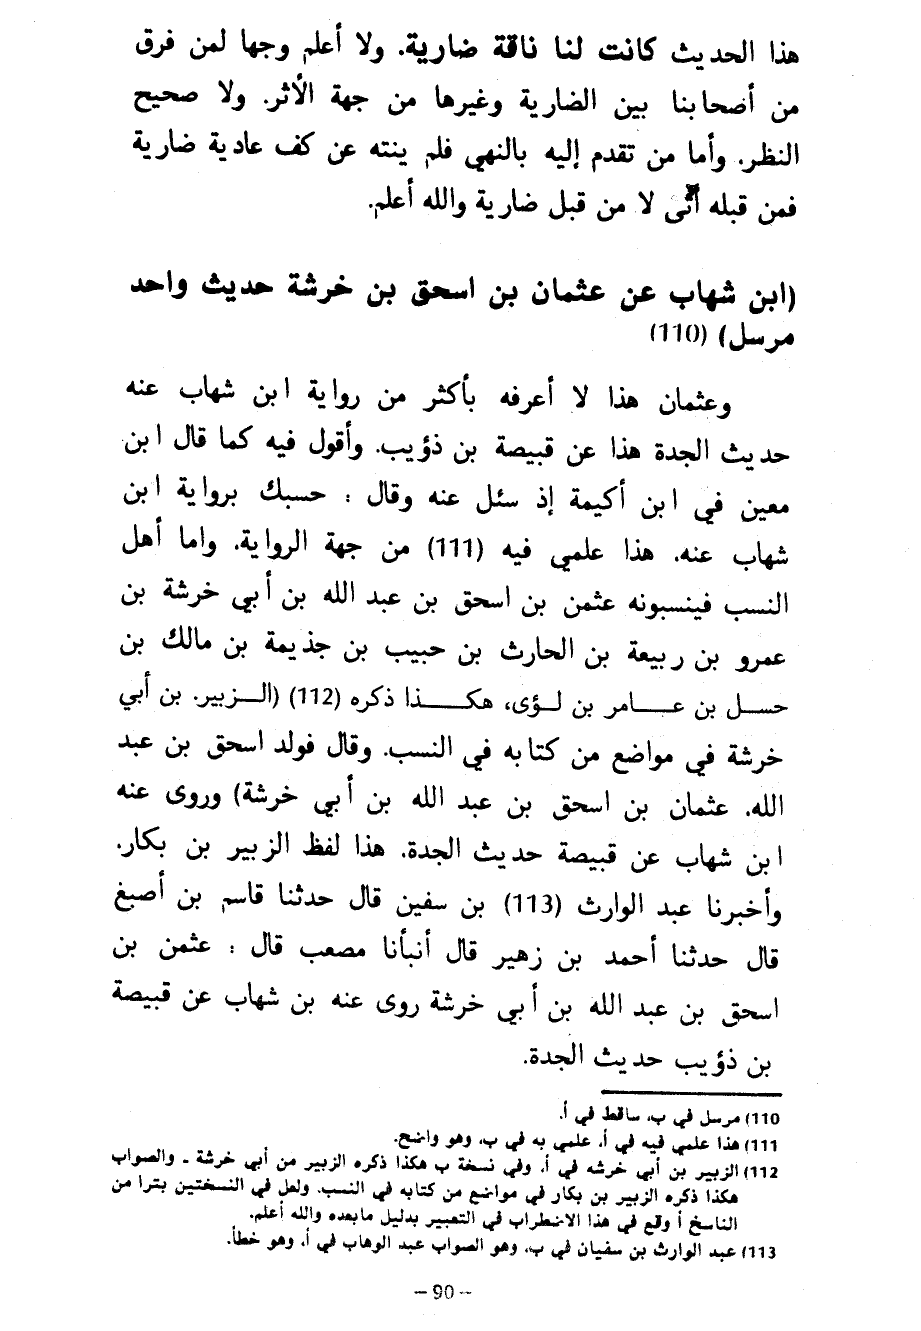 هذا الحديث كانت لنا ناقة ضارية. ولا أعلم وجها لمن فرق
من أصحابنا بين الضارية وغيرها من جهة الأثر. ولا صحيح
النظر. وأما من تقدم إليه بالنهي فلم ينته عن كف عادية ضارية
فمن قبله أتى لا من قبل ضارية والله أعلم.
(ابن شهاب عن عثمان بن اسحق بن خرشة حديث واحد
مرسل) (110)
وعثمان هذا لا أعرفه بأكثر من رواية ابن شهاب عنه
حديث الجدة هذا عن قبيصة بن ذؤيب. وأقول فيه كما قال ابن
معين في ابن أكيمة إذ سئل عنه وقال : حسبك برواية ابن
شهاب عنه. هذا علمي فيه (111) من جهة الرواية. واما أهل
النسب فينسبونه عثمن بن اسحق بن عبد الله بن أبي خرشة بن
عمرو بن ربيعة بن الحارث بن حبيب بن جذيمة بن مالك بن
حسل بن عامر بن لؤى، هكذا ذكره (112) (الزبير. بن أبي
خرشة في مواضع من كتابه في النسب. وقال فولد اسحق بن عبد
الله. عثمان بن اسحق بن عبد الله بن أبي خرشة) وروى عنه
ابن شهاب عن قبيصة حديث الجدة. هذا لفظ الزبير بن بكار.
وأخبرنا عبد الوارث (113) بن سفين قال حدثنا قاسم بن أصبغ
قال حدثنا أحمد بن زهير قال أنبأنا مصعب قال : عثمن بن
اسحق بن عبد الله بن أبي خرشة روى عنه بن شهاب عن قبيصة
بن ذؤيب حديث الجدة.
110) مرسل في ب، ساقط في أ.
111) هذا علمي فيه في أ، علمي به في ب، وهو واضح.
112) الزبير بن أبي خرشه في أ، وفي نسخة ب هكذا ذكره الزبير من أبي خرشة ـ والصواب
هكذا ذكره الزبير بن بكار في مواضع من كتابه في النسب. ولعل في النسختين بترا من
الناسخ أ وقع في هذا الاضطراب في التعبير بدليل مابعده والله أعلم.
113) عبد الوارث بن سفيان في ب، وهو الصواب عبد الوهاب في أ، وهو خطأ.
– 90 –